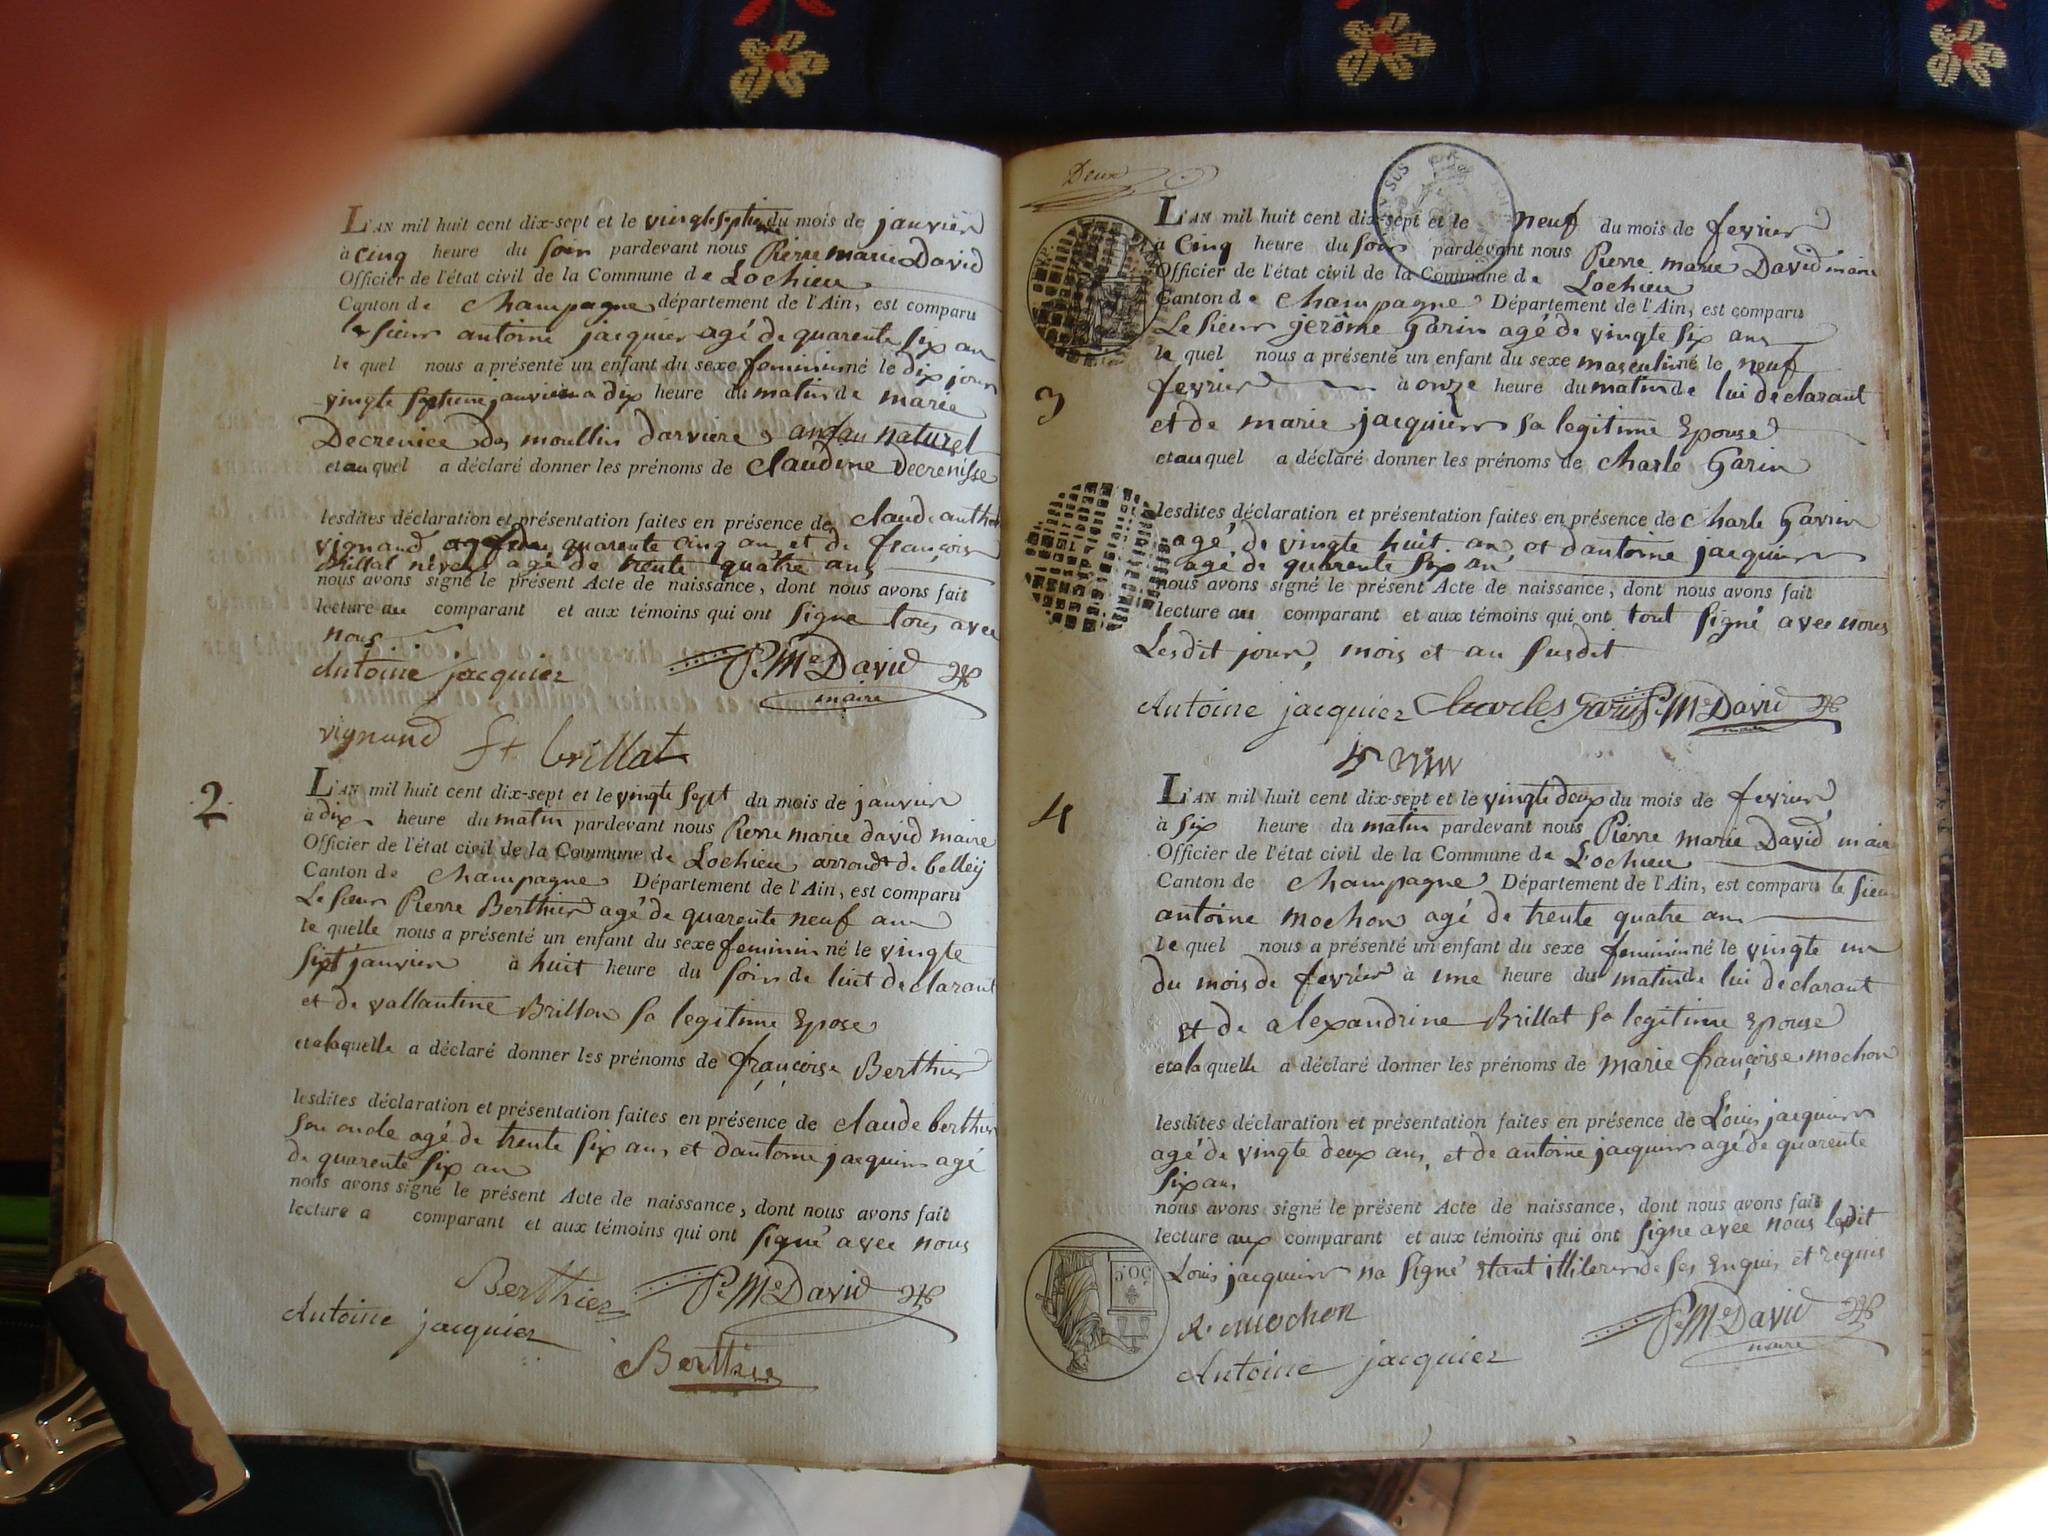 L'AN mil huit cent dix-sept et le vingt septieme du mois de janvier
à cinq heure du soir pardevant nous Pierre marie David
Officier de l'état civil de la Commune de Lochieu
Canton de Champagne département de l'Ain, est comparu
le sieur antoine jacquier agé de quarente six an
le quel nous a présenté un enfant du sexe feminin né le dix jour
vingte septieme janvier a dix heure du matin de marie
Decrenice des moullin darviere anfan naturel
et au quel a déclaré donner les prénoms de claudine Decrenisse
lesdites déclaration et présentation faites en présence de claude anth
vignand agé de quarente cinq an et de françois
Brillat neveu agé de trente quatre ans
nous avons signé le présent Acte de naissance, dont nous avons fait
lecture au comparant et aux témoins qui ont signe tous avec
nous
Antoine jacquier P. Me David
maire
vignand fs brillat
2
L'AN mil huit cent dix-sept et le vingte sept du mois de janvier
à dix heure du matin pardevant nous Pierre marie david maire
Officier de l'état civil de la Commune de Lochieu arrondt de belleÿ
Canton de Champagne Département de l'Ain, est comparu
Le sieur Pierre Berthier agé de quarente neuf ans
le quelle nous a présenté un enfant du sexe feminin né le vingte
sixt janvier à huit heure du soir de luit declarant
et de vallantine Brillon sa legitime Epose
et a laquelle a déclaré donner les prénoms de françoise Berthier
lesdites déclaration et présentation faites en présence de claude berthier
son oncle agé de trente six ans et dantoine jacquier agé
de quarente six an
nous avons signé le présent Acte de naissance, dont nous avons fait
lecture a comparant et aux témoins qui ont signé avec nous
Berthier P. Me David
Antoine jacquier
Berthier
Deux
SUS
L'AN mil huit cent dix-sept et le neuf du mois de fevrier
à cinq heure du soir pardevant nous Pierre marie David maire
Officier de l'état civil de la Commune de Lochieu
Canton de Champagne Département de l'Ain, est comparu
Le sieur jerôme Garin agé de vingte six ans
le quel nous a présenté un enfant du sexe masculin né le neuf
3
fevrier à onze heure du matin de lui declarant
et de marie jacquier sa legitime Epouse
et au quel a déclaré donner les prénoms de charle Garin
lesdites déclaration et présentation faites en présence de charle Garin
agé de vingte huit an et dantoine jacquier
agé de quarente six an
nous avons signé le présent Acte de naissance, dont nous avons fait
lecture au comparant et aux témoins qui ont tout signé avec nous
Lesdit jour, mois et an susdit
Antoine jacquier Charles Garin P. Me David
maire
4
L'AN mil huit cent dix-sept et le vingte deux du mois de fevrier
à six heure du matin pardevant nous Pierre marie David maire
Officier de l'état civil de la Commune de Lochieu
Canton de Champagne Département de l'Ain, est comparu le sieur
antoine mochon agé de trente quatre ans
le quel nous a présenté un enfant du sexe feminin né le vingte un
du mois de fevrier à une heure du matin de lui declarant
et de alexandrine Brillat sa legitime epouse
et a la quelle a déclaré donner les prénoms de marie françoise mochon
lesdites déclaration et présentation faites en présence de Louis jacquier
agé de vingte deux ans, et de antoine jacquier agé de quarente
six ans
nous avons signé le présent Acte de naissance, dont nous avons fait
lecture aux comparant et aux témoins qui ont signé avec nous ledit
Louis jacquier na signé etant de ses enquis et requis
50C
A. mochon P. Me David
maire
Antoine jacquier